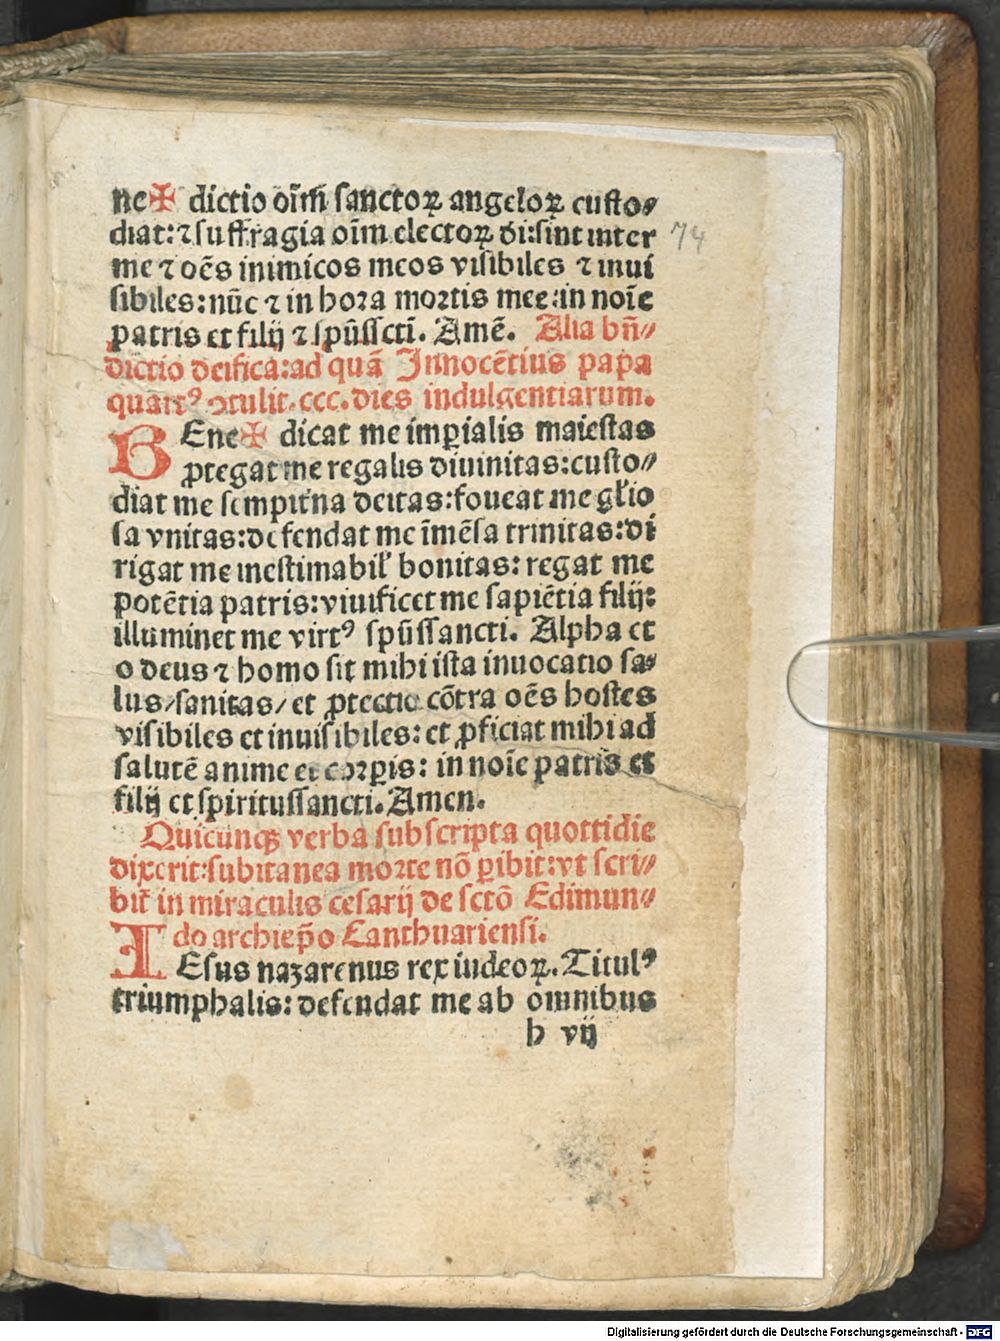 ne✠ dictio oīm̄ sanctoꝝ angeloꝝ custo⸗
diat: ⁊ suffragia oīm electoꝝ dī: sint inter
me ⁊ oēs inimicos meos visibiles ⁊ inui
sibiles: nūc ⁊ in hora mortis mee: in noīe
patris et filij ⁊ spūssctī. Amē. Alia bn̄⸗
dictio deifica: ad quā Innocētius papa
quartꝰ ꝯtulit. ccc. dies indulgentiarum.
BEne✠ dicat me imꝑialis maiestas
ꝓtegat me regalis diuinitas: custo⸗
diat me sempit̄na deitas: foueat me gl̄io
sa vnitas: defendat me īmēsa trinitas: di
rigat me inestimabil̄ bonitas: regat me
potētia patris: viuificet me sapiētia filij:
illuminet me virtꝰ spūssancti. Alpha et
o deus ⁊ homo sit mihi ista inuocatio sa⸗
lus/sanitas/ et ꝓtectio cōtra oēs hostes
visibiles et inuisibiles: et ꝓficiat mihi ad
salutē anime et corꝑis: in noīe patris et
filij et spiritussancti. Amen.
Quicunqꝫ verba subscripta quottidie
dixerit: subitanea morte nō ꝑibit: vt scri⸗
bit̄ in miraculis cesarij de sctō Edimun⸗
do archiep̄o Canthuariensi.
IEsus nazarenus rex iudeoꝝ. Titulꝰ
triumphalis: defendat me ab omnibus
h vij
74
Digitalisierung gefördert durch die Deutsche Forschungsgemeinschaft - DFG